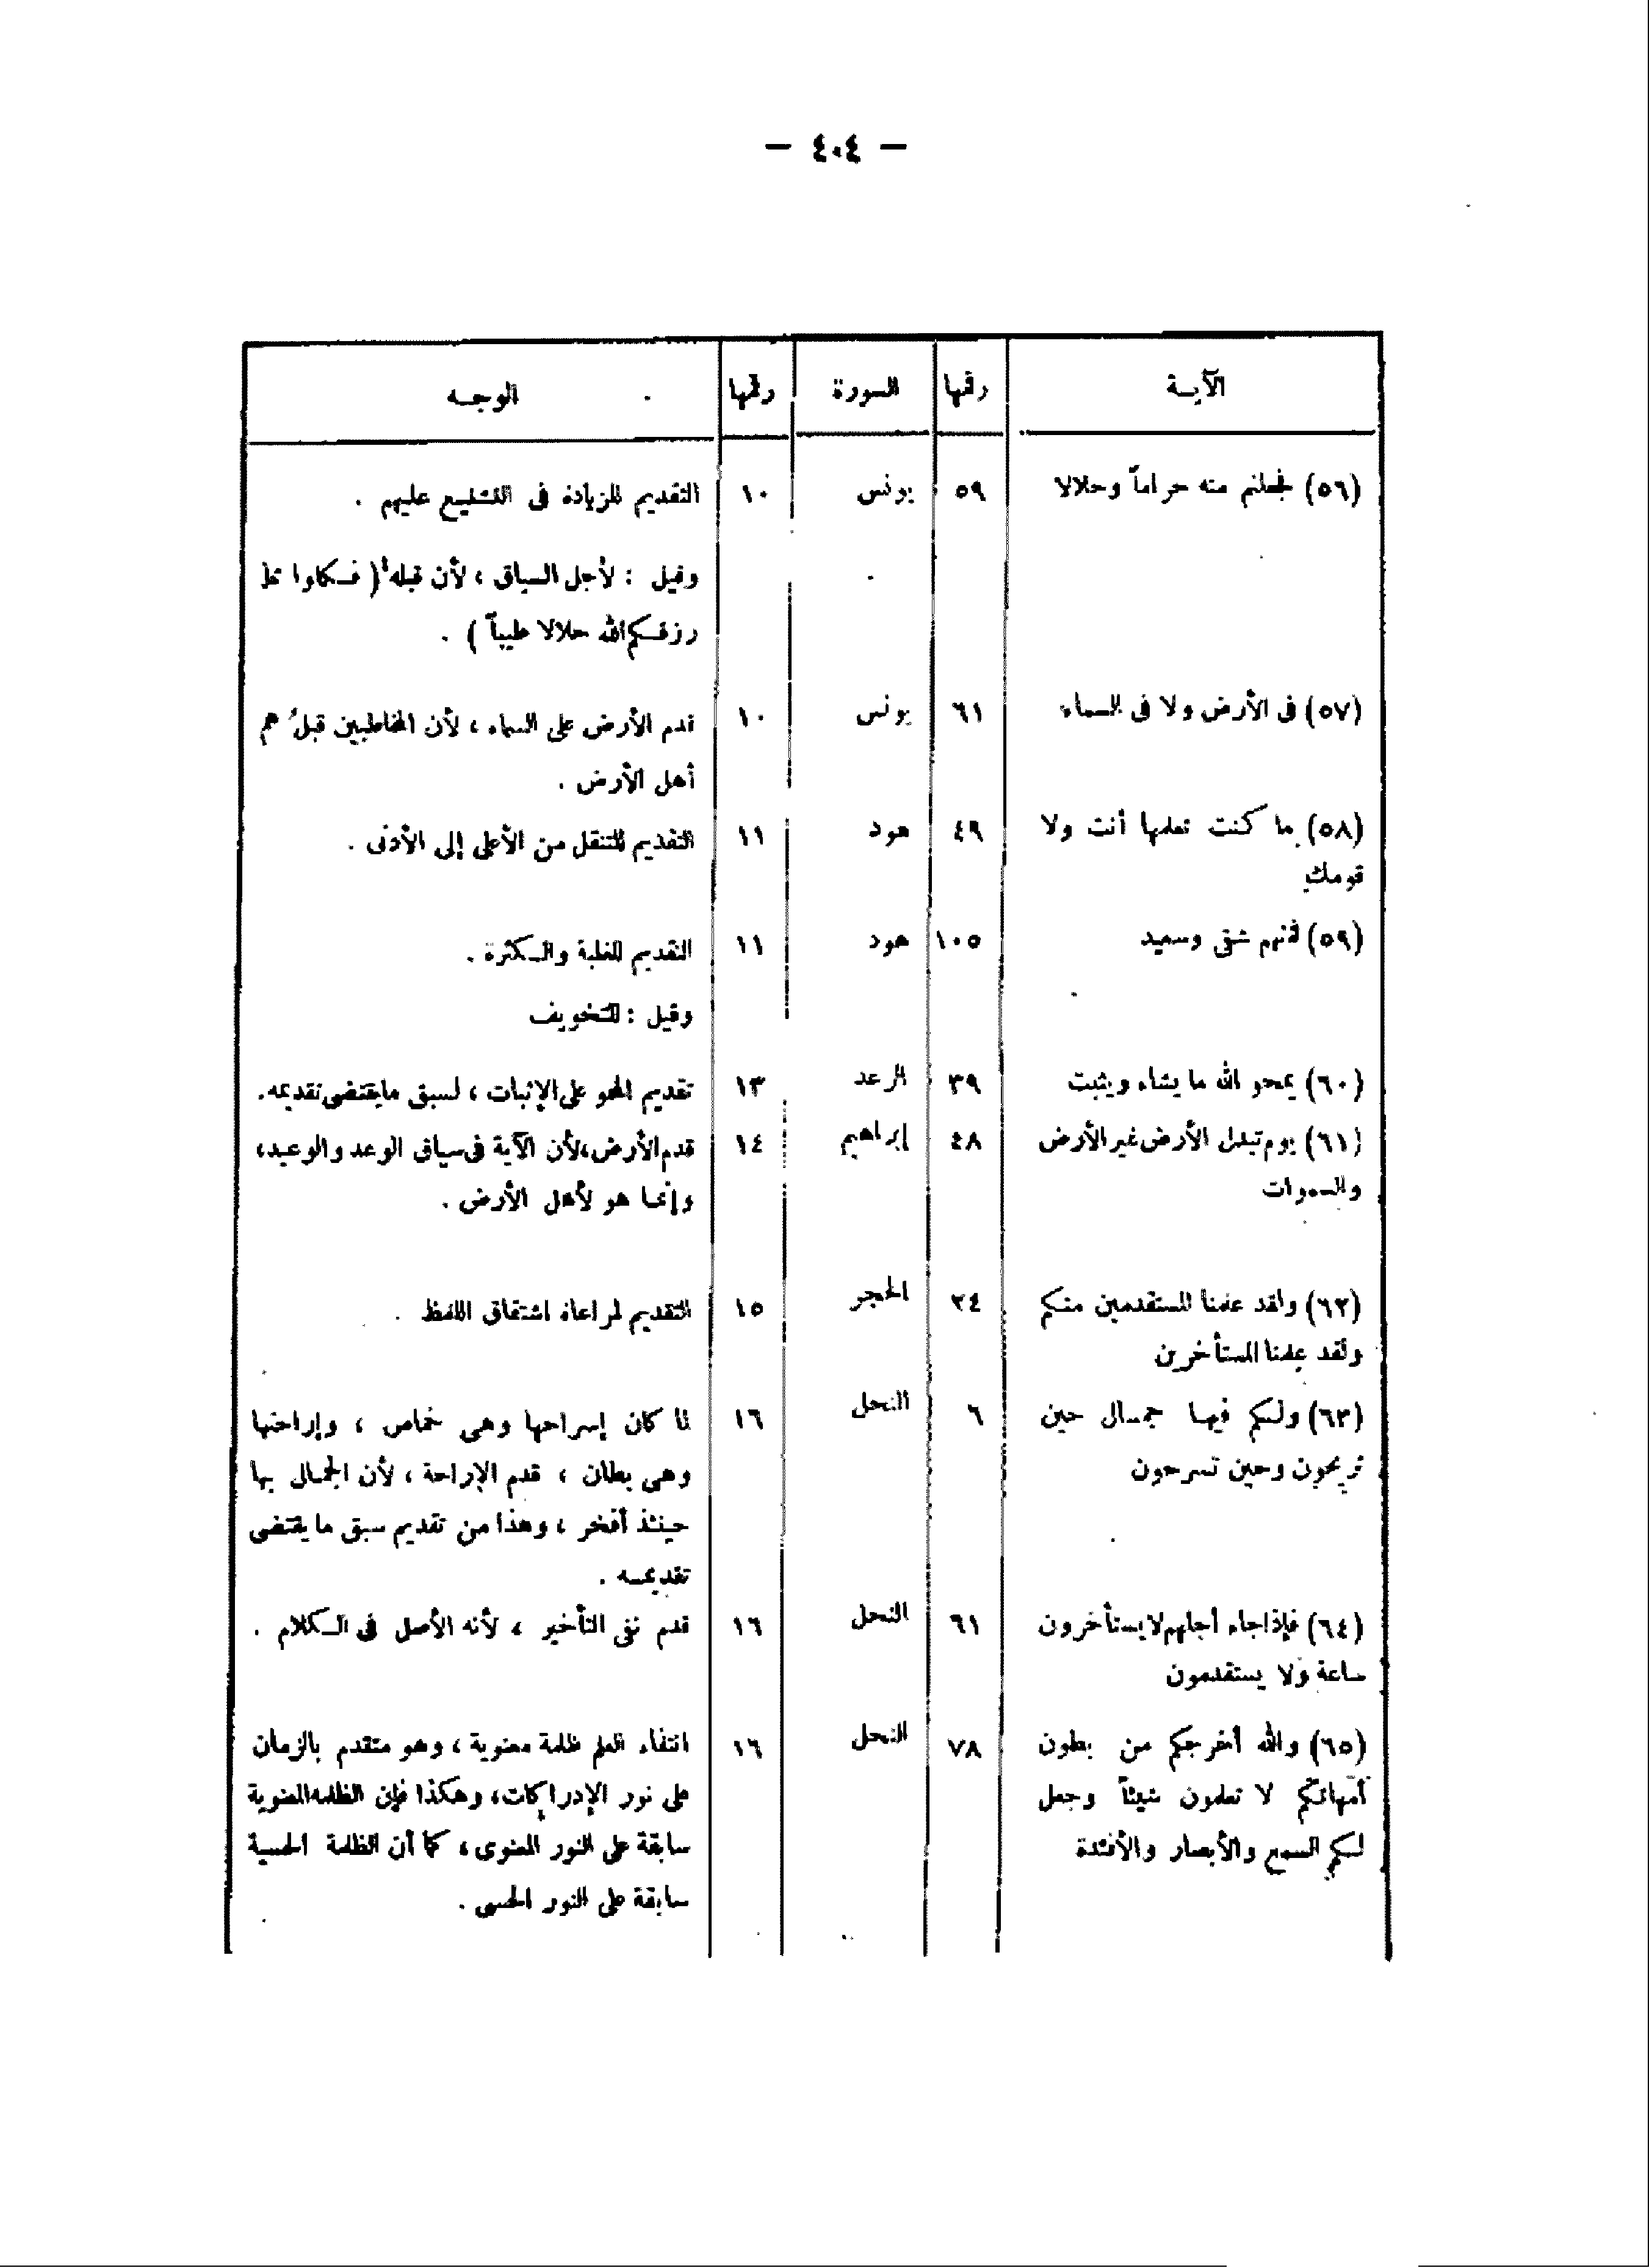 — ٤٠٤ —
الآيـة رقمها السورة رقمها الوجـه
(٥٦) فجعلتم منه حراماً وحلالا ٥٩ يونس ١٠ التقديم للزيادة فى التشنيع عليهم .
وقيل : لأجل السياق ، لأن قبله ( فـكاوا مما
رزقـكم الله حلالا طيباً ) .
(٥٧) فى الأرض ولا فى السماء ٦١ يونس ١٠ قدم الأرض على السماء ، لأن المخاطبين قبلُ هم
أهل الأرض .
(٥٨) ما كنت تعلمها أنت ولا ٤٩ هود ١١ التقديم للتنقل من الأعلى إلى الأدنى .
قومك
(٥٩) فمنهم شقى وسعيد ١٠٥ هود ١١ التقديم للغلبة والـكثرة .
وقيل : للتخويف
(٦٠) يمحو الله ما يشاء ويثبت ٣٩ الرعد ١٣ تقديم المحو على الإثبات ، لسبق ما يقتضى تقديمه.
(٦١) يوم تبدل الأرض غير الأرض ٤٨ إبراهيم ١٤ قدم الأرض، لأن الآية فى سياق الوعد والوعيد،
والسموات
وإنما هو لأهل الأرض .
(٦٢) ولقد علمنا المستقدمين منكم ٢٤ الحجر ١٥ التقديم لمراعاة اشتقاق اللفظ .
ولقد علمنا المستأخرين
(٦٣) ولـكم فيها جمـال حين ٦ النحل ١٦ لما كان إسراحها وهى خماص ، وإراحتها
تريحون وحين تسرحون
وهى بطان ، قدم الإراحة ، لأن الجمال بها
حينئذ أفخر ، وهذا من تقديم سبق ما يقتضى
تقديمـه .
(٦٤) فإذا جاء أجلهم لا يستأخرون ٦١ النحل ١٦ قدم نفى التأخير ، لأنه الأصل فى الـكلام .
ساعة ولا يستقدمون
(٦٥) والله أخرجكم من بطون ٧٨ النحل ١٦ انتفاء العلم ظلمة معنوية ، وهو متقدم بالزمان
أمهاتكم لا تعلمون شيئاً وجعل
على نور الإدراكات، وهكذا فإن الظلمة المعنوية
لـكم السمع والأبصار والأفئدة
سابقة على النور المعنوى ، كما أن الظلمة الحسية
سابقة على النور الحسى .